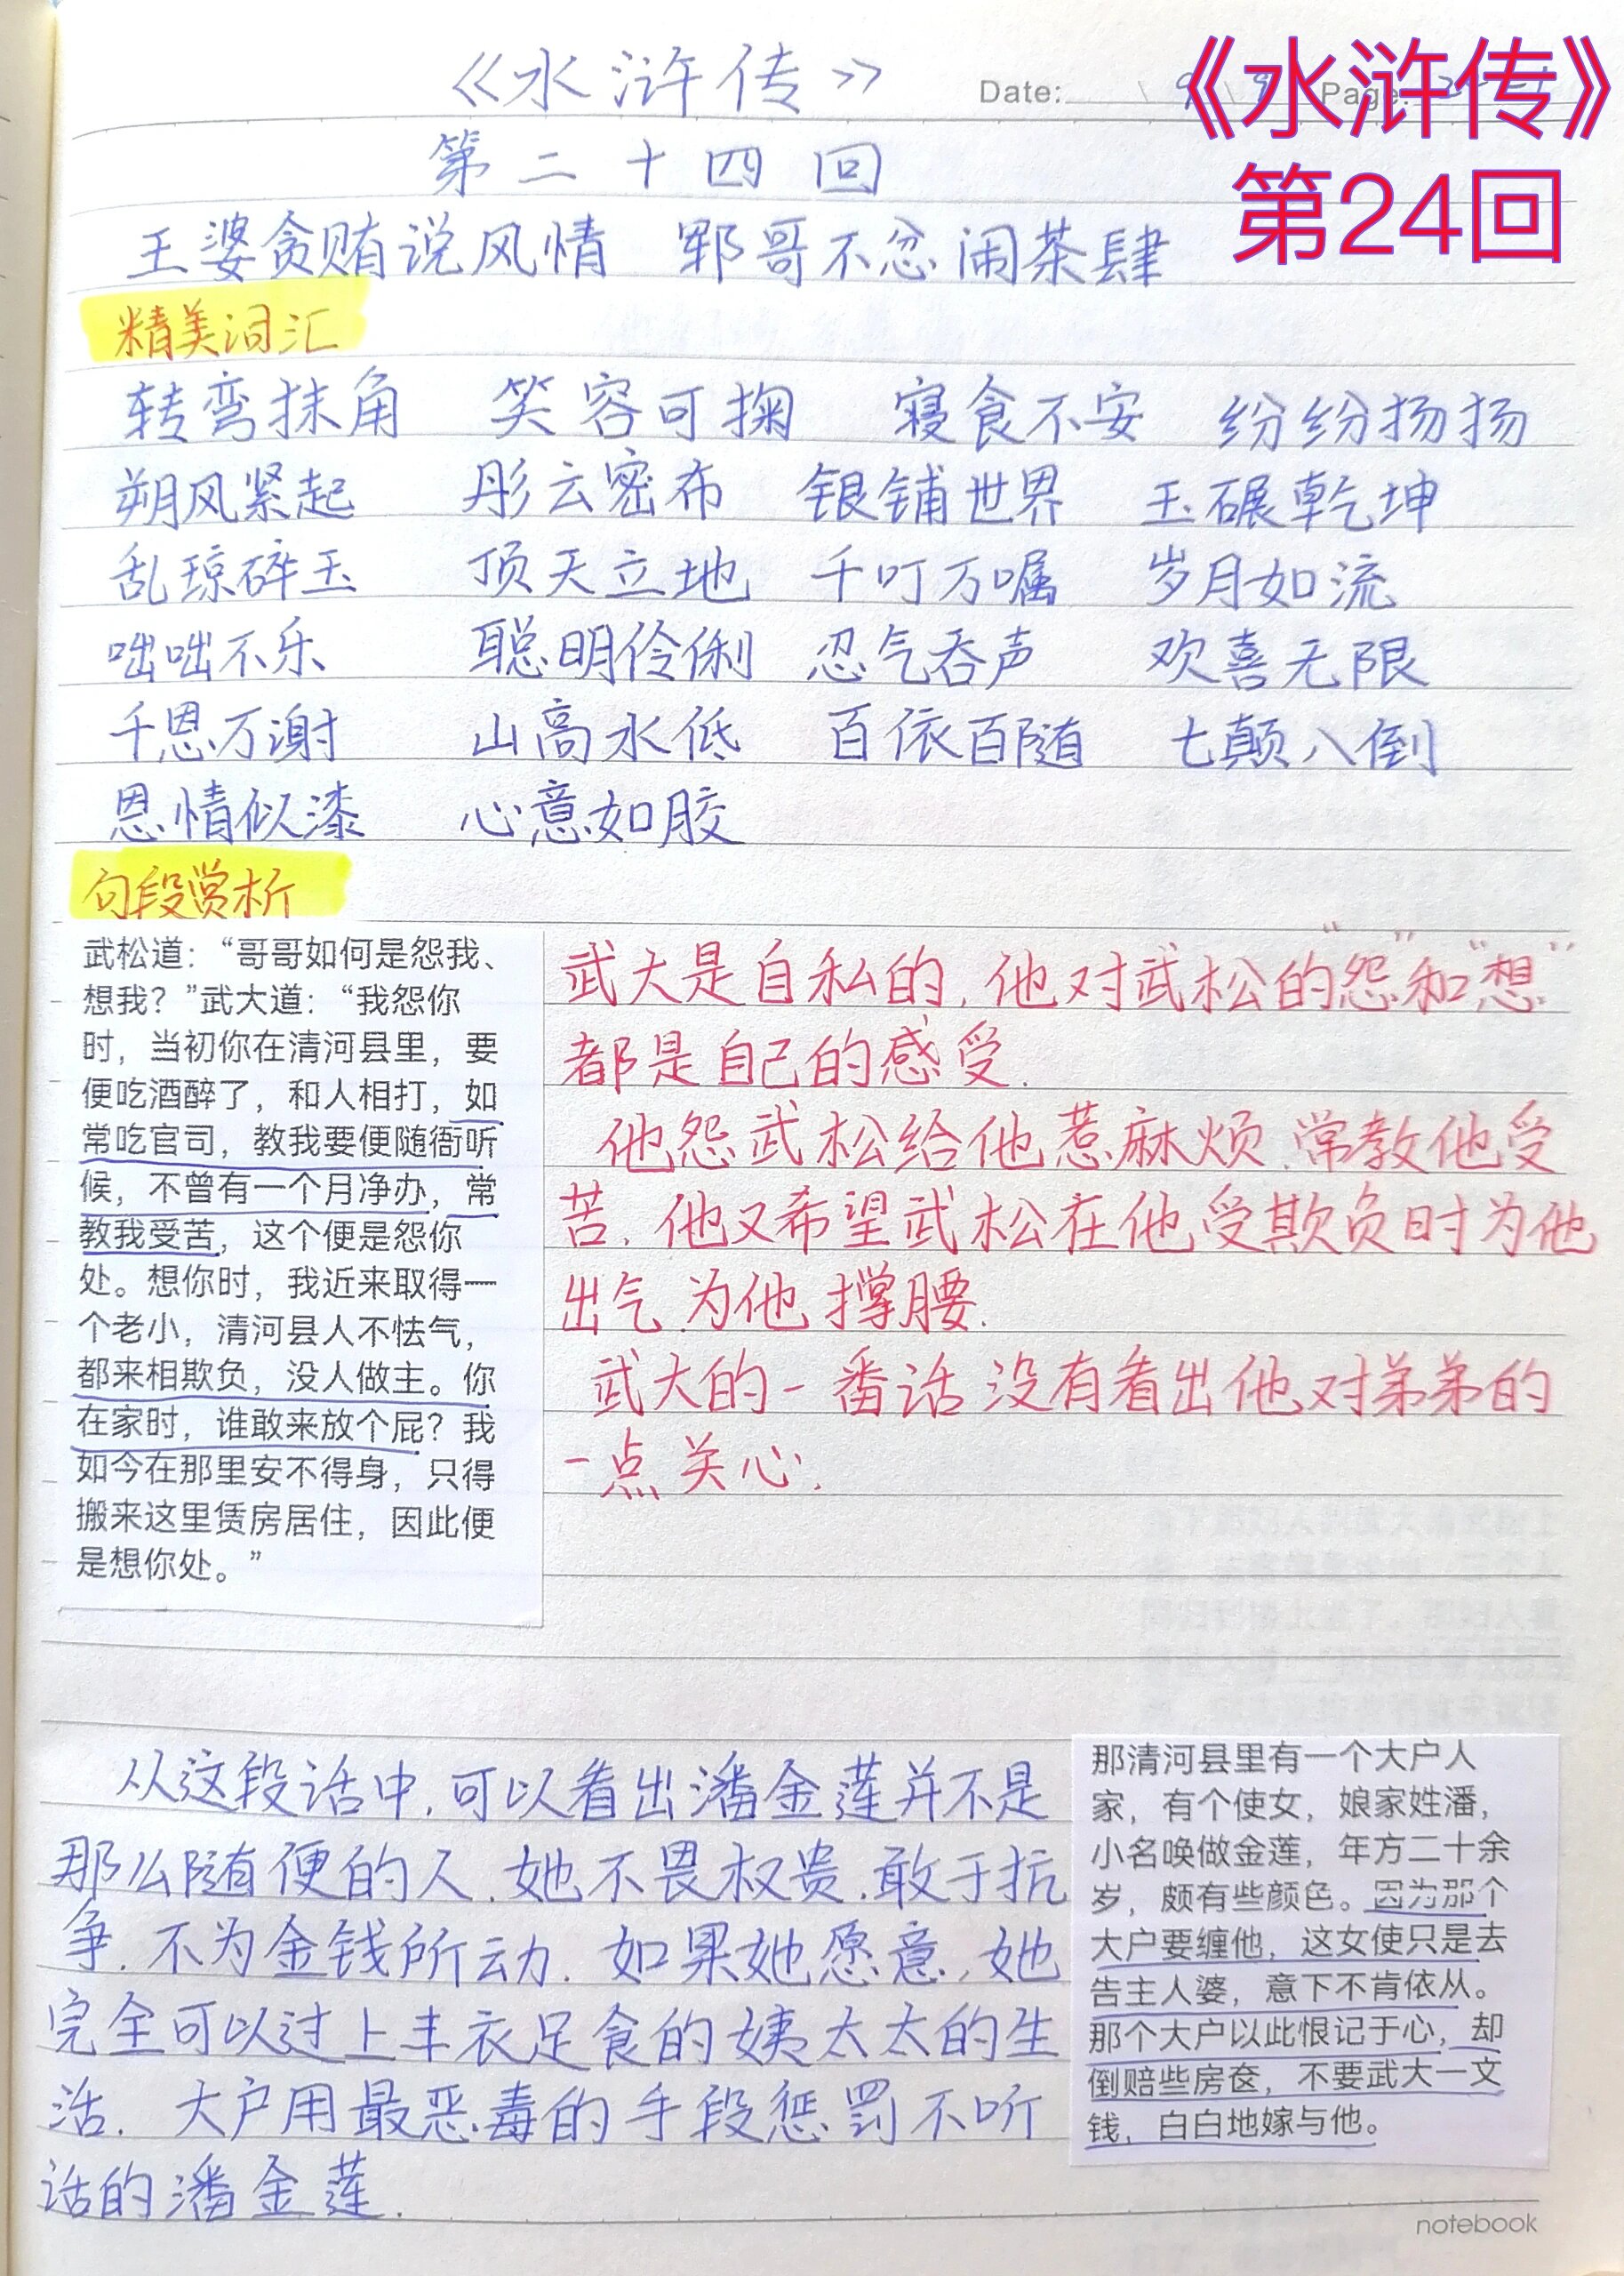 《水浒传》
Date:
《水浒传》
第24回
第二十四回
王婆贪贿说风情 郓哥不忿闹茶肆
精美词汇
转弯抹角 笑容可掬 寝食不安 纷纷扬扬
朔风紧起 彤云密布 银铺世界 玉碾乾坤
乱琼碎玉 顶天立地 千叮万嘱 岁月如流
咄咄不乐 聪明伶俐 忍气吞声 欢喜无限
千恩万谢 山高水低 百依百随 七颠八倒
恩情似漆 心意如胶
句段赏析
武松道：“哥哥如何是怨我、
想我？”武大道：“我怨你
时，当初你在清河县里，要
便吃酒醉了，和人相打，如
常吃官司，教我要便随衙听
候，不曾有一个月净办，常
教我受苦，这个便是怨你
处。想你时，我近来取得一
个老小，清河县人不怯气，
都来相欺负，没人做主。你
在家时，谁敢来放个屁？我
如今在那里安不得身，只得
搬来这里赁房居住，因此便
是想你处。”
武大是自私的，他对武松的“怨”和“想”
都是自己的感受.
他怨武松给他惹麻烦,常教他受
苦.他又希望武松在他受欺负时为他
出气,为他撑腰.
武大的一番话没有看出他对弟弟的
一点关心.
从这段话中,可以看出潘金莲并不是
那么随便的人.她不畏权贵,敢于抗
争.不为金钱所动.如果她愿意,她
完全可以过上丰衣足食的姨太太的生
活.大户用最恶毒的手段惩罚不听
话的潘金莲.
那清河县里有一个大户人
家，有个使女，娘家姓潘，
小名唤做金莲，年方二十余
岁，颇有些颜色。因为那个
大户要缠他，这女使只是去
告主人婆，意下不肯依从。
那个大户以此恨记于心，却
倒赔些房奁，不要武大一文
钱，白白地嫁与他。
notebook